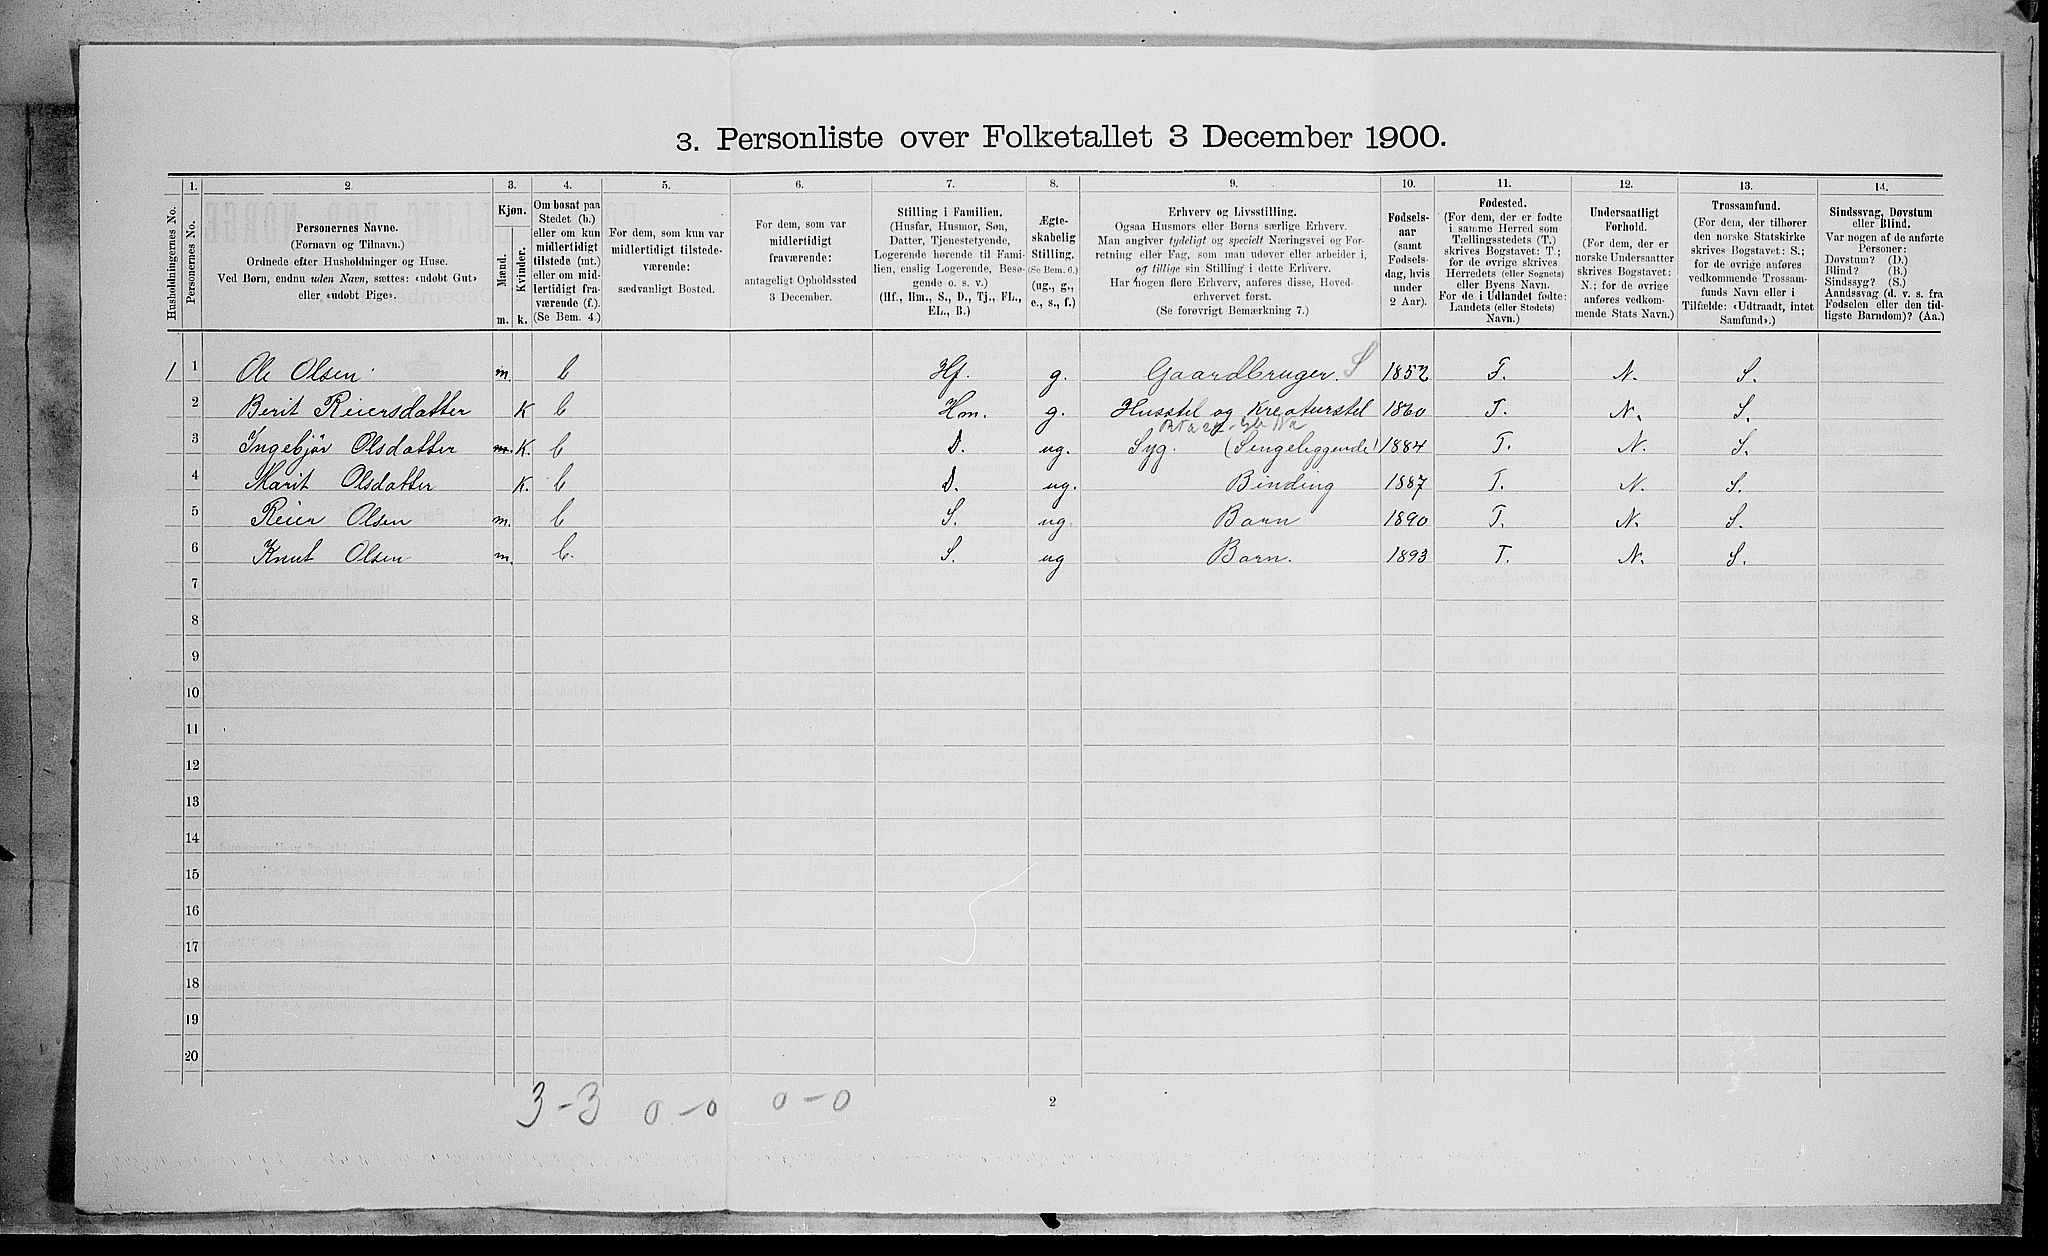 3. Personliste over Folketallet 3 December 1900.
1. 2. 3. 4. 5. 6. 7. 8. 9. 10. 11. 12. 13. 14.
Husholdningernes No.
Personernes No.
Personernes Navne.
(Fornavn og Tilnavn.)
Ordnede efter Husholdninger og Huse.
Ved Børn, endnu uden Navn, sættes: «udøbt Gut»
eller «udøbt Pige».
Kjøn.
Mænd.
Kvinder.
m. k.
Om bosat paa
Stedet (b.)
eller om kun
midlertidigt
tilstede (mt.)
eller om mid-
lertidigt fra-
værende (f.).
(Se Bem. 4.)
For dem, som kun var
midlertidigt tilstede-
værende:
sædvanligt Bosted.
For dem, som var
midlertidigt
fraværende:
antageligt Opholdssted
3 December.
Stilling i Familien.
(Husfar, Husmor, Søn,
Datter, Tjenestetyende,
Logerende hørende til Fami-
lien, enslig Logerende, Besø-
gende o. s. v.)
(Hf., Hm., S., D., Tj., FL.,
EL., B.)
Ægte-
skabelig
Stilling.
(Se Bem. 6.)
(ug., g.,
e., s., f.)
Erhverv og Livsstilling.
Ogsaa Husmors eller Børns særlige Erhverv.
Man angiver tydeligt og specielt Næringsvei og For-
retning eller Fag, som man udøver eller arbeider i,
og tillige sin Stilling i dette Erhverv.
Har nogen flere Erhverv, anføres disse, Hoved-
erhvervet først.
(Se forøvrigt Bemærkning 7.)
Fødsels-
aar
(samt
Fødsels-
dag, hvis
under
2 Aar).
Fødested.
(For dem, der er fødte
i samme Herred som
Tællingsstedets (T.)
skrives Bogstavet: T.;
for de øvrige skrives
Herredets (eller Sognets)
eller Byens Navn.
For de i Udlandet fødte:
Landets (eller Stedets)
Navn.)
Undersaatligt
Forhold.
(For dem, der er
norske Undersaatter
skrives Bogstavet:
N.; for de øvrige
anføres vedkom-
mende Stats Navn.)
Trossamfund.
(For dem, der tilhører
den norske Statskirke
skrives Bogstavet: S.;
for de øvrige anføres
vedkommende Trossam-
funds Navn eller i
Tilfælde: «Udtraadt, intet
Samfund».)
Sindssvag, Døvstum
eller Blind.
Var nogen af de anførte
Personer:
Døvstum? (D.)
Blind? (B.)
Sindssyg? (S.)
Aandssvag (d. v. s. fra
Fødselen eller den tid-
ligste Barndom)? (Aa.)
1 1 Ole Olsen m. b Hf. g. Gaardbruger. S 1852 T. N. S.
2 Berit Reiersdatter K b Hm. g. Husstel og Kreaturstel 1860 T. N. S.
3 Ingebjør Olsdatter m. K. b D. ug. Syg. (Sengeliggende) 1884 T. N. S.
4 Marit Olsdatter K. b D. ug. Binding 1887 T. N. S.
5 Reier Olsen m. b S. ug. Barn 1890 T. N. S.
6 Knut Olsen m. b. S. ug Barn. 1893 T. N. S.
7
8
9
10
11
12
13
14
15
16
17
18
19
20
3-3 0-0 0-0
2